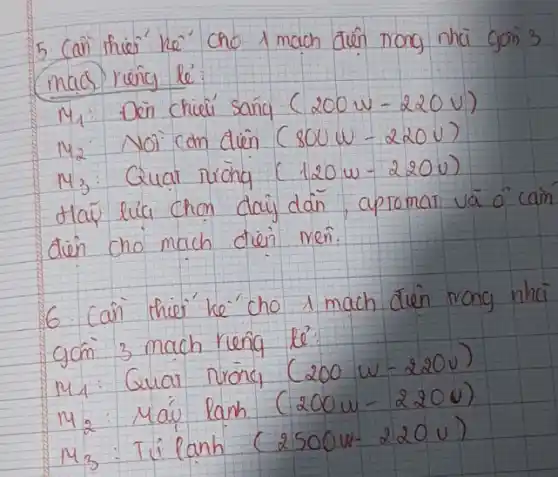 5. Cần thiết kế cho 1 mạch điện trong nhà gồm 3
mạch riêng lẻ:
M1: Đèn chiếu sáng (200W - 220V)
M2: Nồi cơm điện (800W - 220V)
M3: Quạt trường (120W - 220V)
Hãy lựa chọn dây dẫn, aptomat và ổ cắm
điện cho mạch điện trên.
6. Cần thiết kế cho 1 mạch điện trong nhà
gồm 3 mạch riêng lẻ:
M1: Quạt trường (200W - 220V)
M2: Máy lạnh (1200W - 220V)
M3: Tủ lạnh (2500W - 220V)